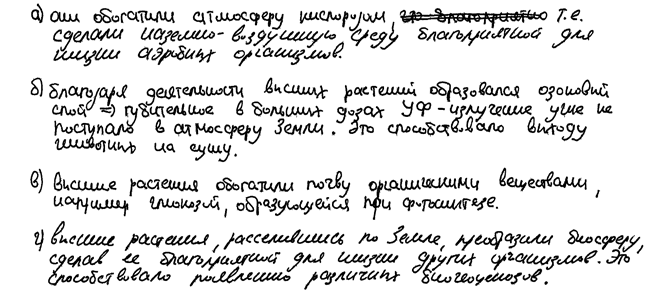 а) они обогатили атмосферу кислородом, это благоприятно т.е.
сделали наземно-воздушную среду благоприятной для
жизни аэробных организмов.
б) благодаря деятельности высших растений образовался озоновый
слой ⇒ губительное в больших дозах УФ-излучение уже не
поступало в атмосферу Земли. Это способствовало выходу
животных на сушу.
в) высшие растения обогатили почву органическими веществами,
например глюкозой, образующейся при фотосинтезе.
г) высшие растения, расселившись по Земле, преобразили биосферу,
сделав её благоприятной для жизни других организмов. Это
способствовало появлению различных биогеоценозов.